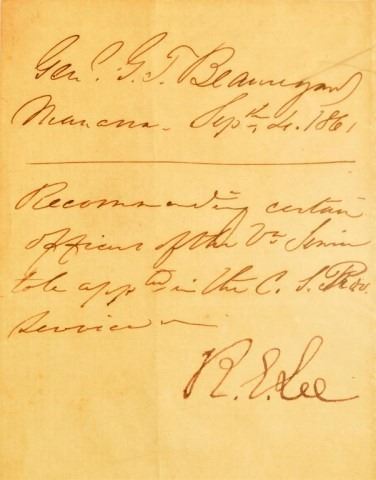 Genl. G. T. Beauregard
Manassa. Septh, 4. 1861
Recommending certain
officers of the Va
to be apptd in the C. S. Prov.
service —
R. E. Lee